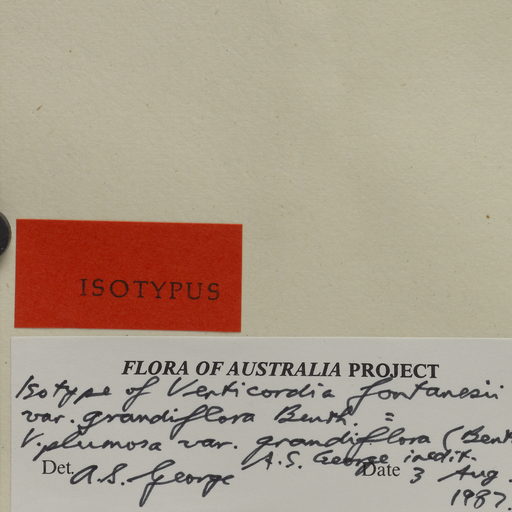 ISOTYPUS
FLORA OF AUSTRALIA PROJECT
Isotype of Verticordia fontanesii
var. grandiflora Benth. =
V. plumosa var. grandiflora (Benth
A.S. George inedit.
Det. A.S. George Date 3 Aug.
1987.